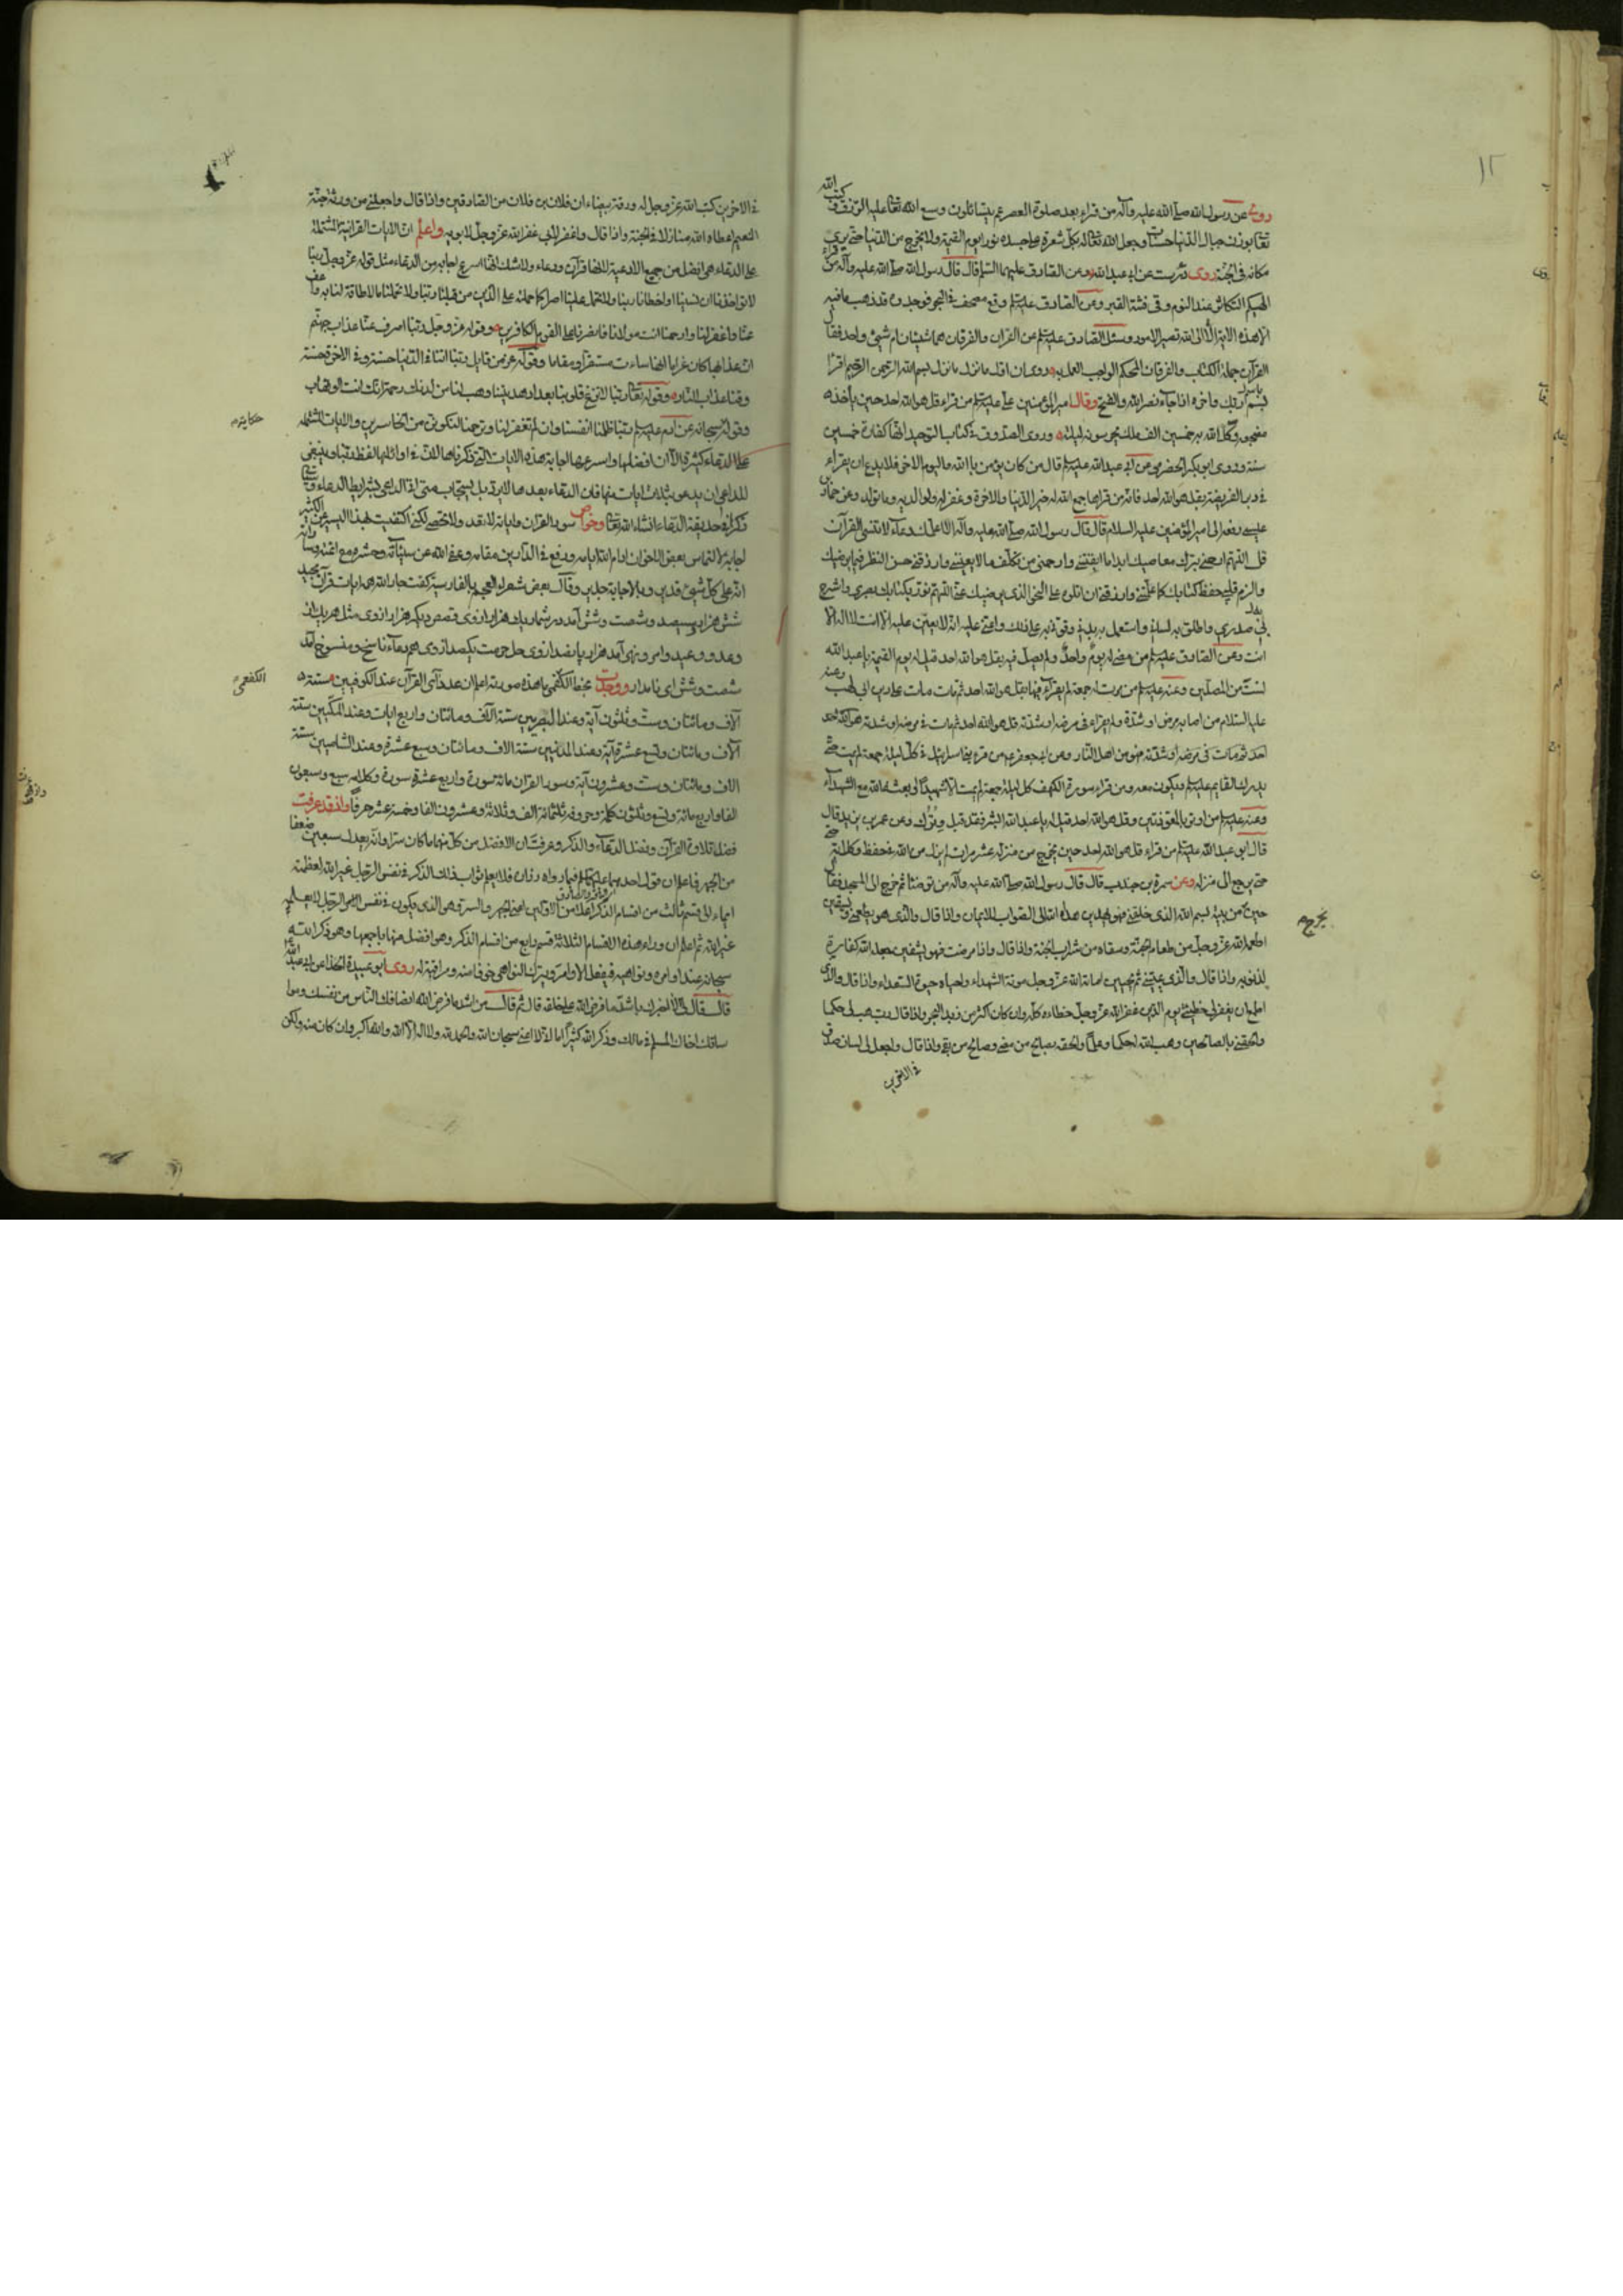 ١٢
روي عن رسول الله صلى الله عليه وآله من قراء بعد صلوة العصر عم يتسائلون وسع الله تعالى عليه الرزق و كتب الله
تعالى بوزن جبال الدنيا حسنات وجعل الله تعالى له بكل شعرة على جسده نورا يوم القيمة ولا يخرج من الدنيا حتى يرى
مكانه فى الجنة روى عن ابى عبد الله وعن الصادق عليهما السلم قال قال رسول الله صلى الله عليه وآله من قراء
الهيكم التكاثر عند النوم وقى فتنة القبر وعن الصادق عليه السلم وقع مصحف في البحر فوجدوه قد ذهب ما فيه
الا هذه الآية الا الى الله تصير الامور وسئل الصادق عليه السلم عن القرآن والفرقان هما شيئان ام شيئ واحد فقال
القرآن جملة الكتاب والفرقان المحكم الواجب العمل به وروى ان اول ما نزل بسم الله الرحمن الرحيم اقرا
باسم ربك وآخره اذا جاء نصر الله والفتح وقال امير المؤمنين على عليه السلم من قراء قل هو الله احد حين ياخذ
مضجعه وكل الله به خمسين الف ملك يحرسونه ليلته وروى الصدوق في كتاب التوحيد انها كفارة خمسين
سنة وروى ابو بكر الحضرمى عن ابى عبد الله عليه السلم قال من كان يؤمن بالله واليوم الاخر فلا يدع ان يقراء
في دبر الفريضة بقل هو الله احد فانه من قراها جمع الله له خير الدنيا والاخرة وغفر له ولوالديه وما تولد وعن حماد بن
عيسى رفعه الى امير المؤمنين عليه السلام قال قال رسول الله صلى الله عليه وآله الا اعلمك دعاء لا تنسى القرآن
قل اللهم ارحمني بترك معاصيك ابدا ما ابقيتني وارحمني من تكلف ما لا يعنيني وارزقني حسن النظر فيما يرضيك
والزم قلبي حفظ كتابك كما علمتني وارزقني ان اتلوه على النحو الذى يرضيك عنى اللهم نور بكتابك بصري واشرح
به صدري واطلق به لساني واستعمل به بدني وقوني به على ذلك واعني عليه انه لا يعين عليه الا انت لا اله الا
انت وعن الصادق عليه السلم من مضى له يوم واحد ولم يصل فيه بقل هو الله احد قيل له يوم القيمة يا عبد الله
لست من المصلين وعنه عليه السلم من مرت له جمعة لم يقراء فيها بقل هو الله احد ثم مات مات على دين ابى لهب وعنه
عليه السلام من اصابه مرض او شدة ولم يقراء فى مرضه او شدته قل هو الله احد ثم مات في مرضه او شدته
وعن ابى جعفر من قراء بنى اسرائيل في كل ليلة جمعة لم يمت حتى
يدرك القايم عليه السلم ويكون معه ومن قراء سورة الكهف كل ليلة جمعة لم يمت الا شهيدا او بعثه الله مع الشهداء
وعنه عليه السلم من اوتر بالمعوذتين وقل هو الله احد قيل له يا عبد الله ابشر فقد قبل وترك وعن عمر بن يزيد قال
قال ابو عبد الله عليه السلم من قراء قل هو الله احد حين يخرج من منزله عشر مرات لم يزل من الله في حفظ وكلائة
حتى يرجع الى منزله وعن سمرة بن جندب قال قال رسول الله صلى الله عليه وآله من توضئا ثم خرج الى المسجد فقال
حين يخرج من بيته بسم الله الذى خلقني فهو يهدين هداه الله الى الصواب للايمان واذا قال والذى هو يطعمني ويسقين
اطعمه الله عز وجل من طعام الجنة وسقاه من شراب الجنة واذا قال واذا مرضت فهو يشفين جعله الله كفارة
لذنوبه واذا قال والذى يميتني ثم يحيين اماته الله عز وجل موتة الشهداء واحياه حيوة السعداء واذا قال والذى
اطمع ان يغفر لى خطيئتي يوم الدين غفر الله عز وجل خطاءه كله وان كان اكثر من زبد البحر واذا قال رب هب لى حكما
والحقني بالصالحين وهب الله له حكما وعلما والحقه بصالح من مضى وصالح من بقى واذا قال واجعل لى لسان صدق
في الاخرين
يخرج
في الاخرين كتب الله عز وجل له ورقة بيضاء ان فلان بن فلان من الصادقين واذا قال واجعلني من ورثة جنة
النعيم اعطاه الله منازلا في الجنة واذا قال واغفر لابى غفر الله عز وجل لابويه واعلم ان الايات القرانية المشتملة
على الدعاء هى افضل من جميع الادعية لانها قرآن ودعاء ولا شك انها اسرع اجابه من الدعاء مثل قوله عز وجل ربنا
لا تواخذنا ان نسينا او اخطانا ربنا ولا تحمل علينا اصرا كما حملته على الذين من قبلنا ربنا ولا تحملنا ما لا طاقة لنا به واعف
عنا واغفر لنا وارحمنا انت مولانا فانصرنا على القوم الكافرين وقوله عز وجل ربنا اصرف عنا عذاب جهنم
ان عذابها كان غراما انها ساءت مستقرا ومقاما وقوله عز من قايل ربنا اتنا في الدنيا حسنة وفي الاخرة حسنة
وقنا عذاب النار وقوله تعالى ربنا لا تزغ قلوبنا بعد اذ هديتنا وهب لنا من لدنك رحمة انك انت الوهاب
وقوله سبحانه عن آدم عليه السلم ربنا ظلمنا انفسنا وان لم تغفر لنا وترحمنا لنكونن من الخاسرين والايات المشتملة
حكاية
على الدعاء كثيرة الا ان افضلها واسرعها اجابة هذه الايات التي ذكرناها لان في اوائلها لفظ ربنا وينبغى
للداعى ان يدعو بثلاث ايات منها فان الدعاء بعدها لا يرد بل يستجاب متى اتى الداعى بشرايط الدعاء
في حديقة الدعاء انشاء الله تعالى وخواص سور القرآن واياته لا تعد ولا تحصى لكني اكتفيت بهذا اليسير من الكثير
اجابة لالتماس بعض الاخوان ادام الله ايامه ورفع في الدارين مقامه وعفى الله عن سيئاته وحشره مع ائمته وساداته
انه على كل شيئ قدير وبالاجابة جدير وقال بعض شعراء العجم بالفارسية
شش هزار وسيصد وشصت وشش آمد در شمار يك هزار از وى قصص ديكر هزار از وى مثل
وعد و وعيد وامر ونهى آمد هزار پانصد از وى حل حرمت يكصد از وى هم دعاء ناسخ ومنسوخ آمد
شصت وشش اى نامدار ووجدت بخط الكفعمى ما هذه صورته اعلم ان عدد آى القرآن عند الكوفيين ستة
الكفعمى
آلاف ومائتان وست وثلثون آية وعند البصريين ستة آلاف ومائتان واربع ايات وعند المكيين ستة
آلاف ومائتان وتسع عشرة آية وعند المدنيين ستة الاف ومائتان وسبع عشرة وعند الشاميين ستة
الاف ومائتان وست وعشرون آية وسور القران مائة سورة واربع عشرة سورة وكلامه سبع وسبعون
الفا واربع مائة وتسع وثلثون كلمة وحروفه ثلثمائة الف وثلاثة وعشرون الفا وخمسة عشر حرفا واذ قد عرفت
فضل تلاوة القرآن وفضل الدعاء والذكر وعرفت ان الافضل من كل منهما ما كان سرا وانه يعدل سبعين ضعفا
من الجهر فاعلم ان قول احدهما عليهما السلم فيما رواه زرارة فلا يعلم ثواب ذلك الذكر في نفس الرجل غير الله لعظمته
ايماء الى قسم ثالث من اقسام الذكر اعلا من الاولين اعني الجهر والسر وهو الذى يكون في نفس الرجل لا يعلمه
غير الله ثم اعلم ان وراء هذه الاقسام الثلاثة قسم رابع من اقسام الذكر وهو افضل منها باجمعها وهو ذكر الله
سبحانه عند اوامره ونواهيه فيفعل الاوامر ويترك النواهى خوفا منه ومراقبة له روى ابو عبيدة الحذاء عن ابى عبد الله
قال قال لى الا اخبرك باشد ما فرض الله على خلقه قال ثم قال من اشد ما فرض الله انصافك الناس من نفسك ومواساتك
اخاك المسلم في مالك وذكر الله كثيرا اما انى لا اعني سبحان الله والحمد لله ولا اله الا الله والله اكبر وان كان منه ولكن